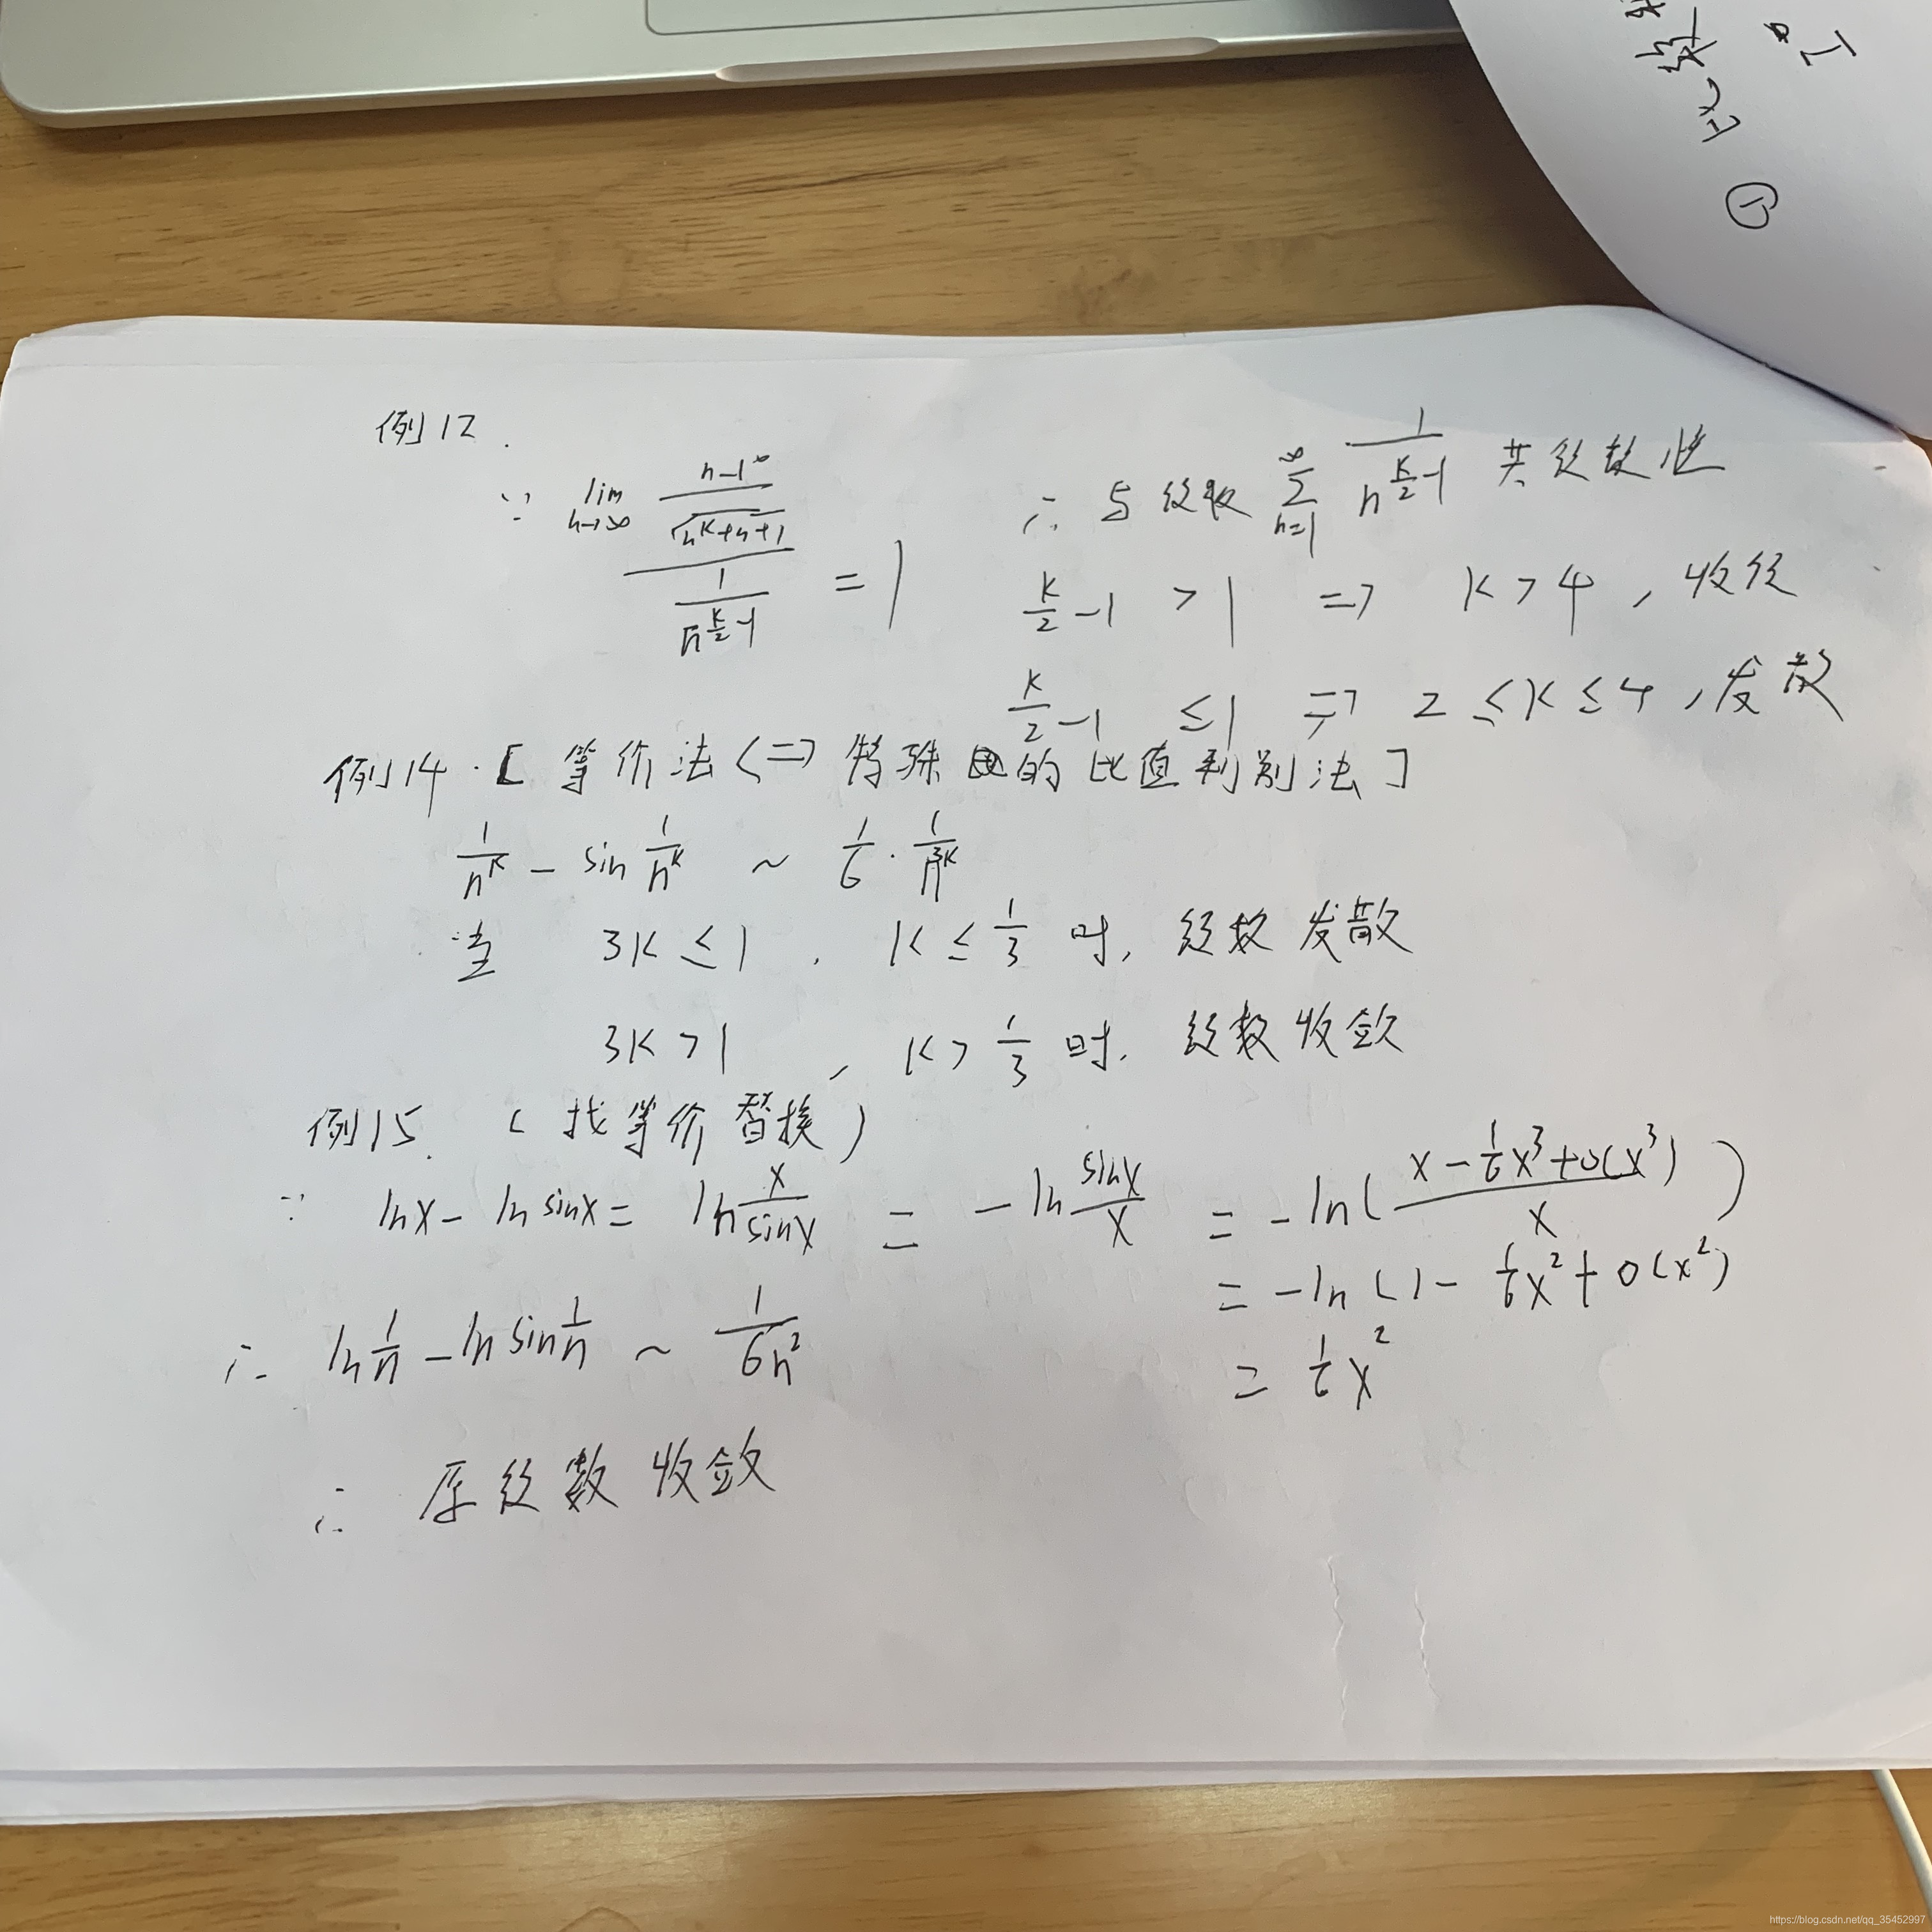 例12.
∵ lim n→∞ (n-1 / √(n^k+n+1)) / (1 / n^(k/2-1)) = 1
∴ 与级收 ∑ n=1 ∞ 1/n^(k/2-1) 共
k/2-1 > 1 => k>4, 收
k/2-1 ≤1 => 2≤k≤4, 发散
例14.[等价法<=>特殊的比值判别法]
1/n^k - sin 1/n^k ~ 1/6 · 1/n^3k
当 3k≤1, k≤1/3 时, 级数发散
3k>1, k>1/3 时, 级数收敛
例15. (找等价替换)
∵ lnx - ln sinx = ln x/sinx = -ln sinx/x = -ln( (x - 1/6 x³+o(x³)) / x )
= -ln (1- 1/6 x² + o(x²)
= 1/6 x²
∴ ln 1/n - ln sin 1/n ~ 1/6n²
∴ 原级数收敛
①
https://blog.csdn.net/qq_35452997